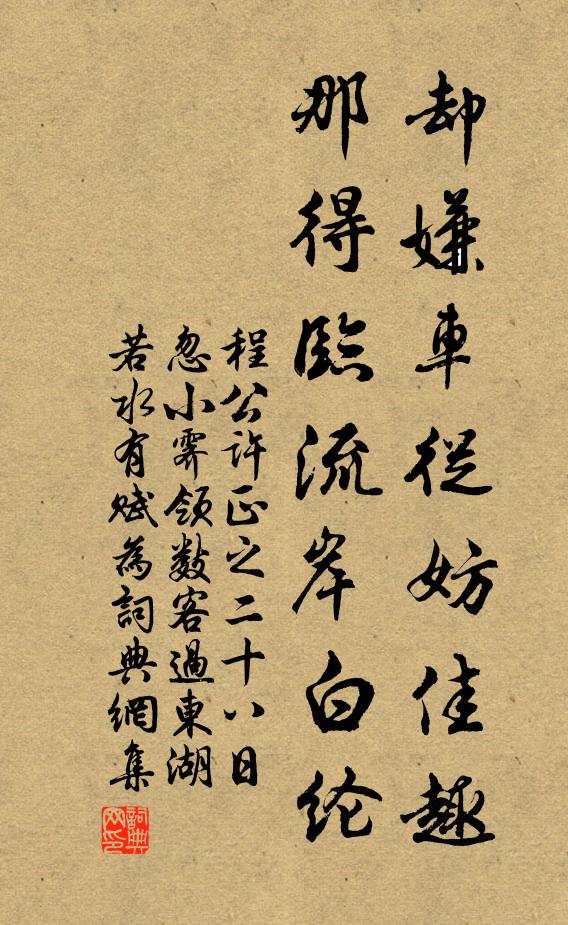 却嫌車従妨佳趣
那得臨流岸白纶
程公许正之二十八日
忽小霽領數客過東湖
若水有賦為詞典網集
詞典网印